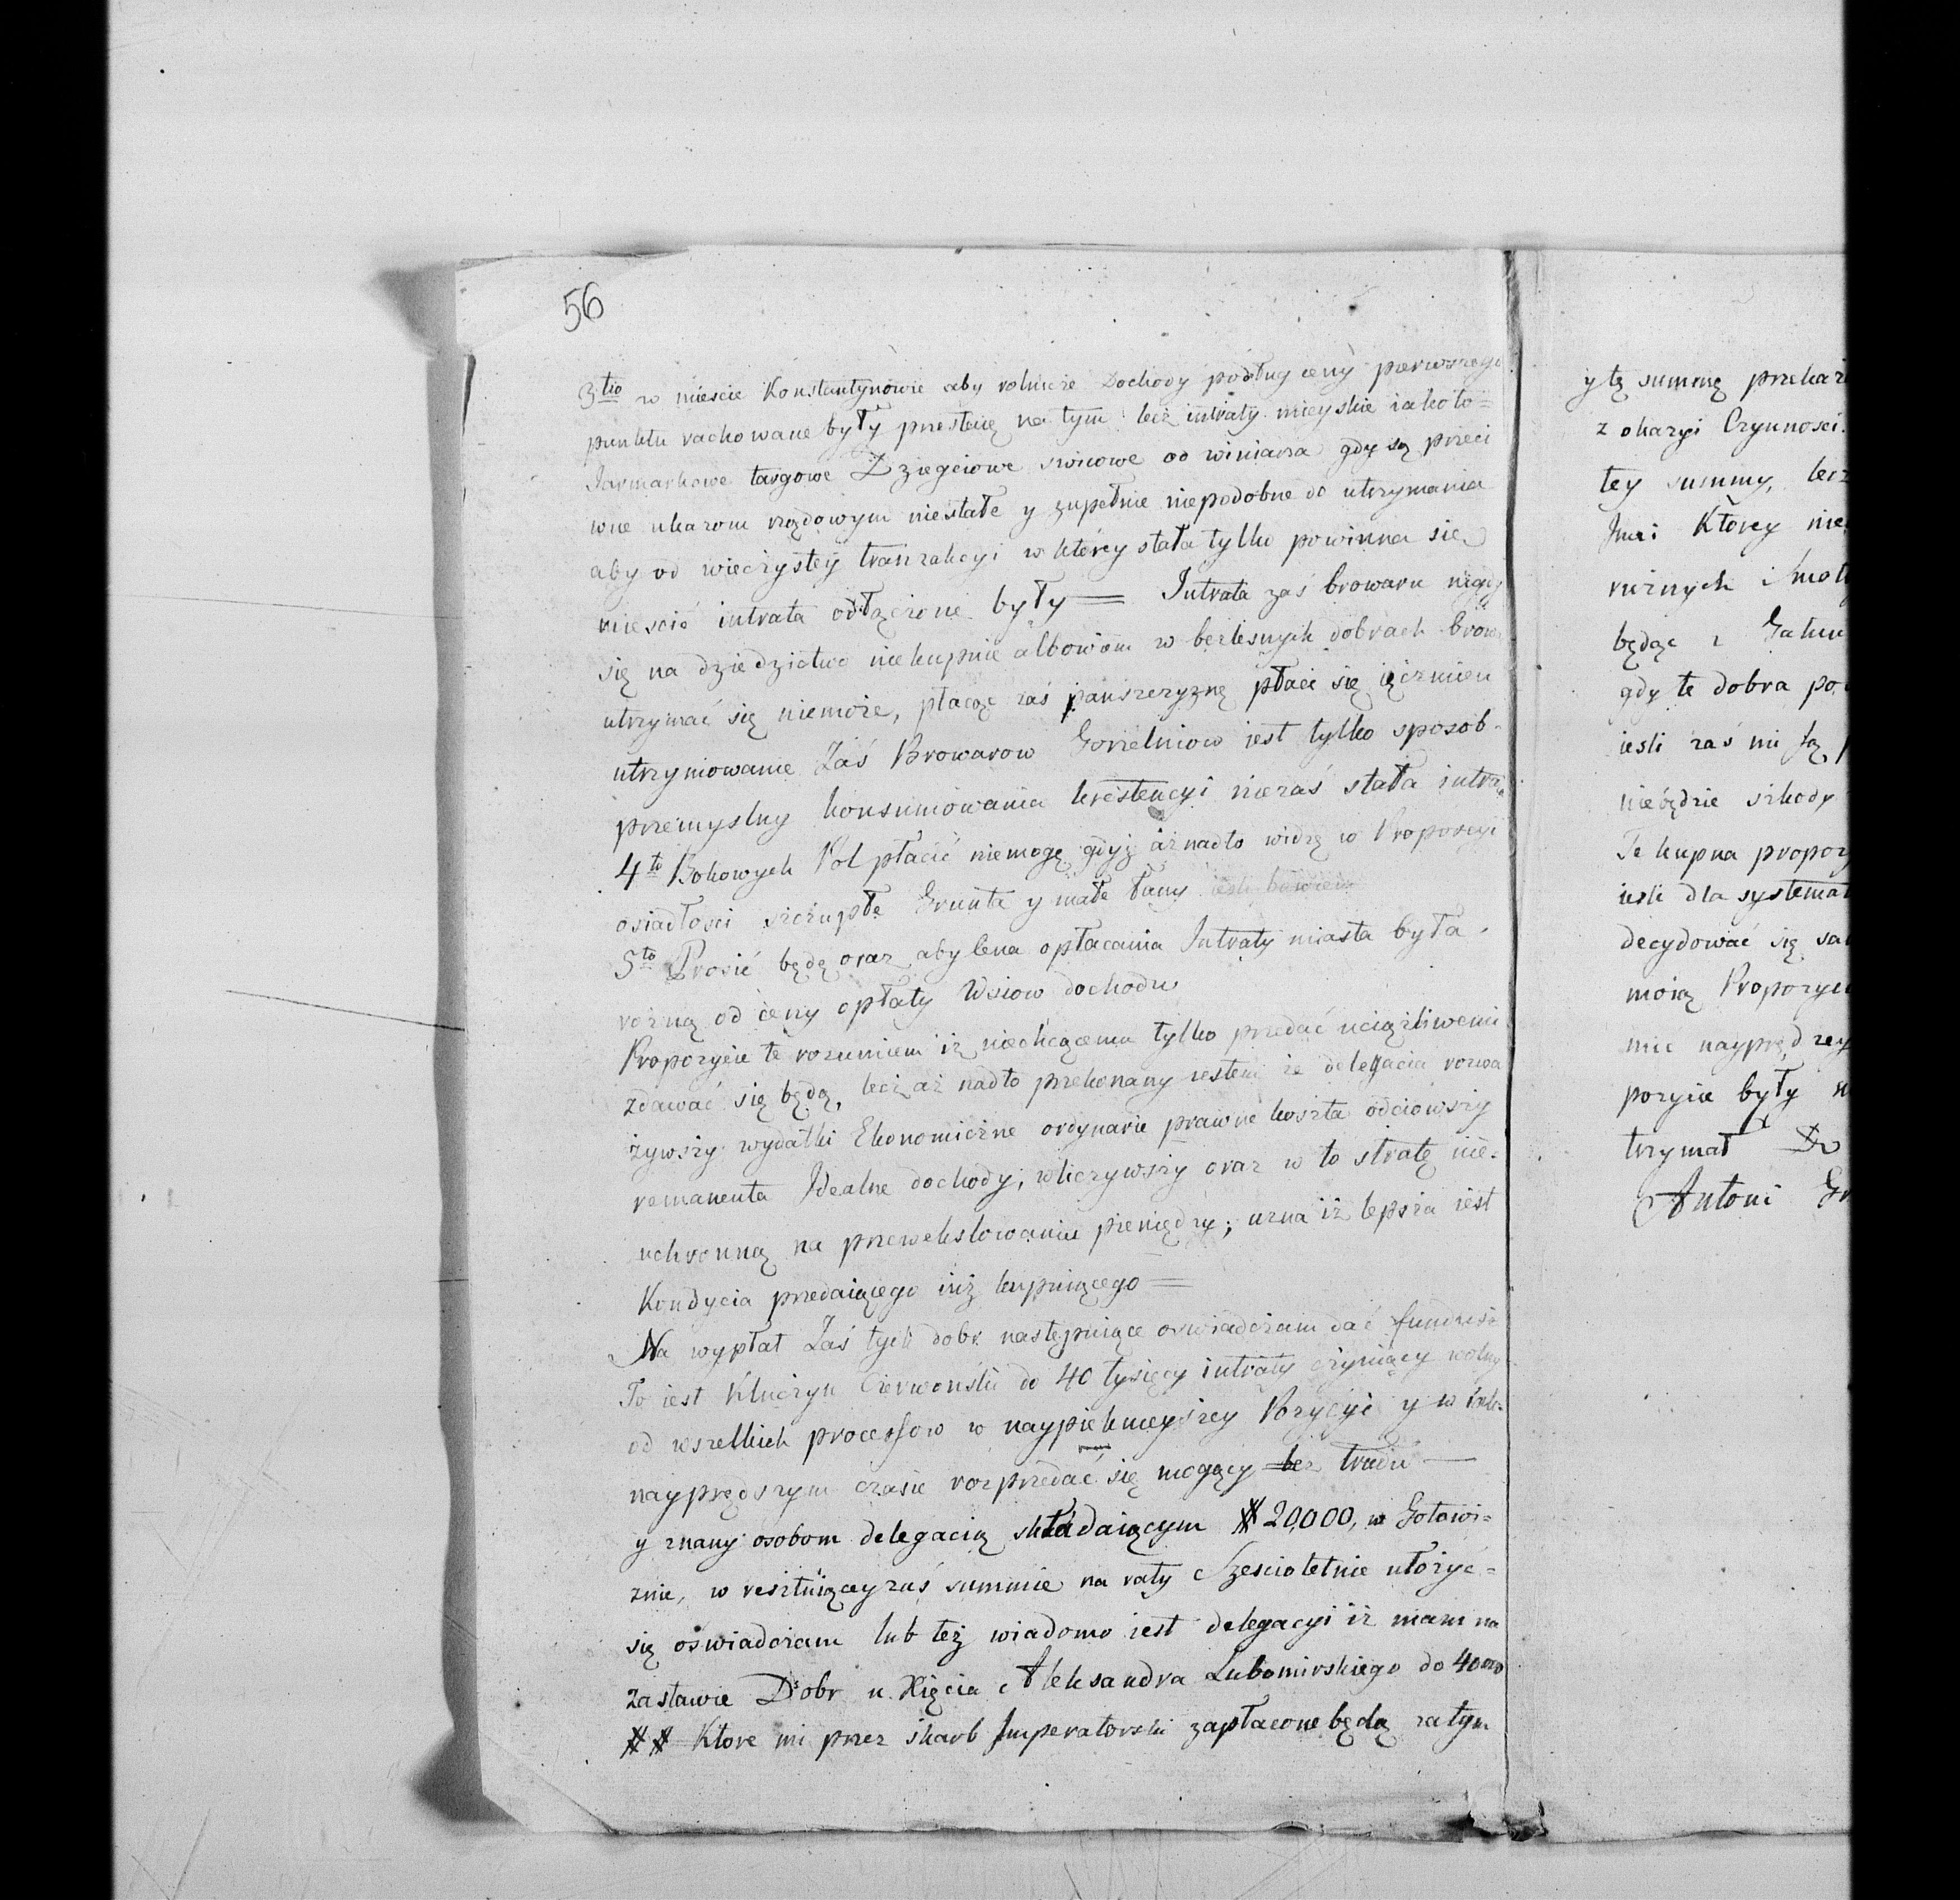 56
3tio w mieście Konstantynowie aby rolnicze Dochody podług ceny pierwszego
punktu rachowane były przestaię na tym lecz intraty mieyskie iakoto=
Jarmarkowe targowe Dziegciowe swicowe od winiarza gdy są przeci
wne ukazom rządowym niestałe y zupełnie niepodobne do utrzymania
aby od wieczystey tranzakcyi w którey stała tylko powinna się
miescić intrata odłączone były = Intrata zaś browaru nigdy
się na dziedzictwo niekupuie albowiem w bezlesnych dobrach brow
utrzymać się niemoże, płacąc zaś panszczyznę płaci się ięczmien
utrzymowanie Zaś Browarow Gorzelniow iest tylko sposob-
przemyslny konsumowania krestencyi niezaś stała intra
4to Bokowych Pol płacić niemogę gdyż aż nadto widzę w Proporcyi
osiadłosci szczupłe Grunta y małe łany
5to Prosić będę oraz aby Cena opłacania Intraty miasta była
rożną od ceny opłaty Wsiow dochodu
Propozycie te rozumiem iż niechcącemu tylko przedać uciążliwemi
zdawać się będą, lecz aż nadto przekonany iestem że delegacia rozwa
żywszy wydatki Ekonomiczne ordynarie prawne koszta odciowszy
remanenta Idealne dochody, wliczywszy oraz w to stratę nie-
uchronną na przewekslowaniu pieniędzy; uzna iż lepsza iest
Kondycia przedaiącego niż kupuiącego =
Na wypłat Zaś tych dobr następuiące oswiadczam dać fundusz
To iest Kluczyk Czerwonski do 40 tysięcy intraty czyniący wolny
od wszelkich processow w naypiekneyszey Pozycyi y w
nayprędszym czasie rozprzedać się mogący bez tradu —
y znany osobom delegacią składaiącym # 20,000, w Gotowi=
znie, w resztuiącey zaś summie na raty Szescioletnie ułożyć=
się oświadczam lub też wiadomo iest delegacyi iż mam na
zastawie Dobr u Xięcia Aleksandra Lubomirskiego do 40000
## Ktore mi przez skarb Imperatorski zapłacone będą zatym
y tę summę przekaz
z okazyi Czynnosci.
tey summy, lecz
Ktorey nie
roznych
będąc z
gdy te dobra po
iesli zaś mi są
niebędzie szkody
Te kupna propozy
iesli dla systemat
decydować się
moią Propozyci
mie nayprędzey
pozycie były
trzymał
Antoni